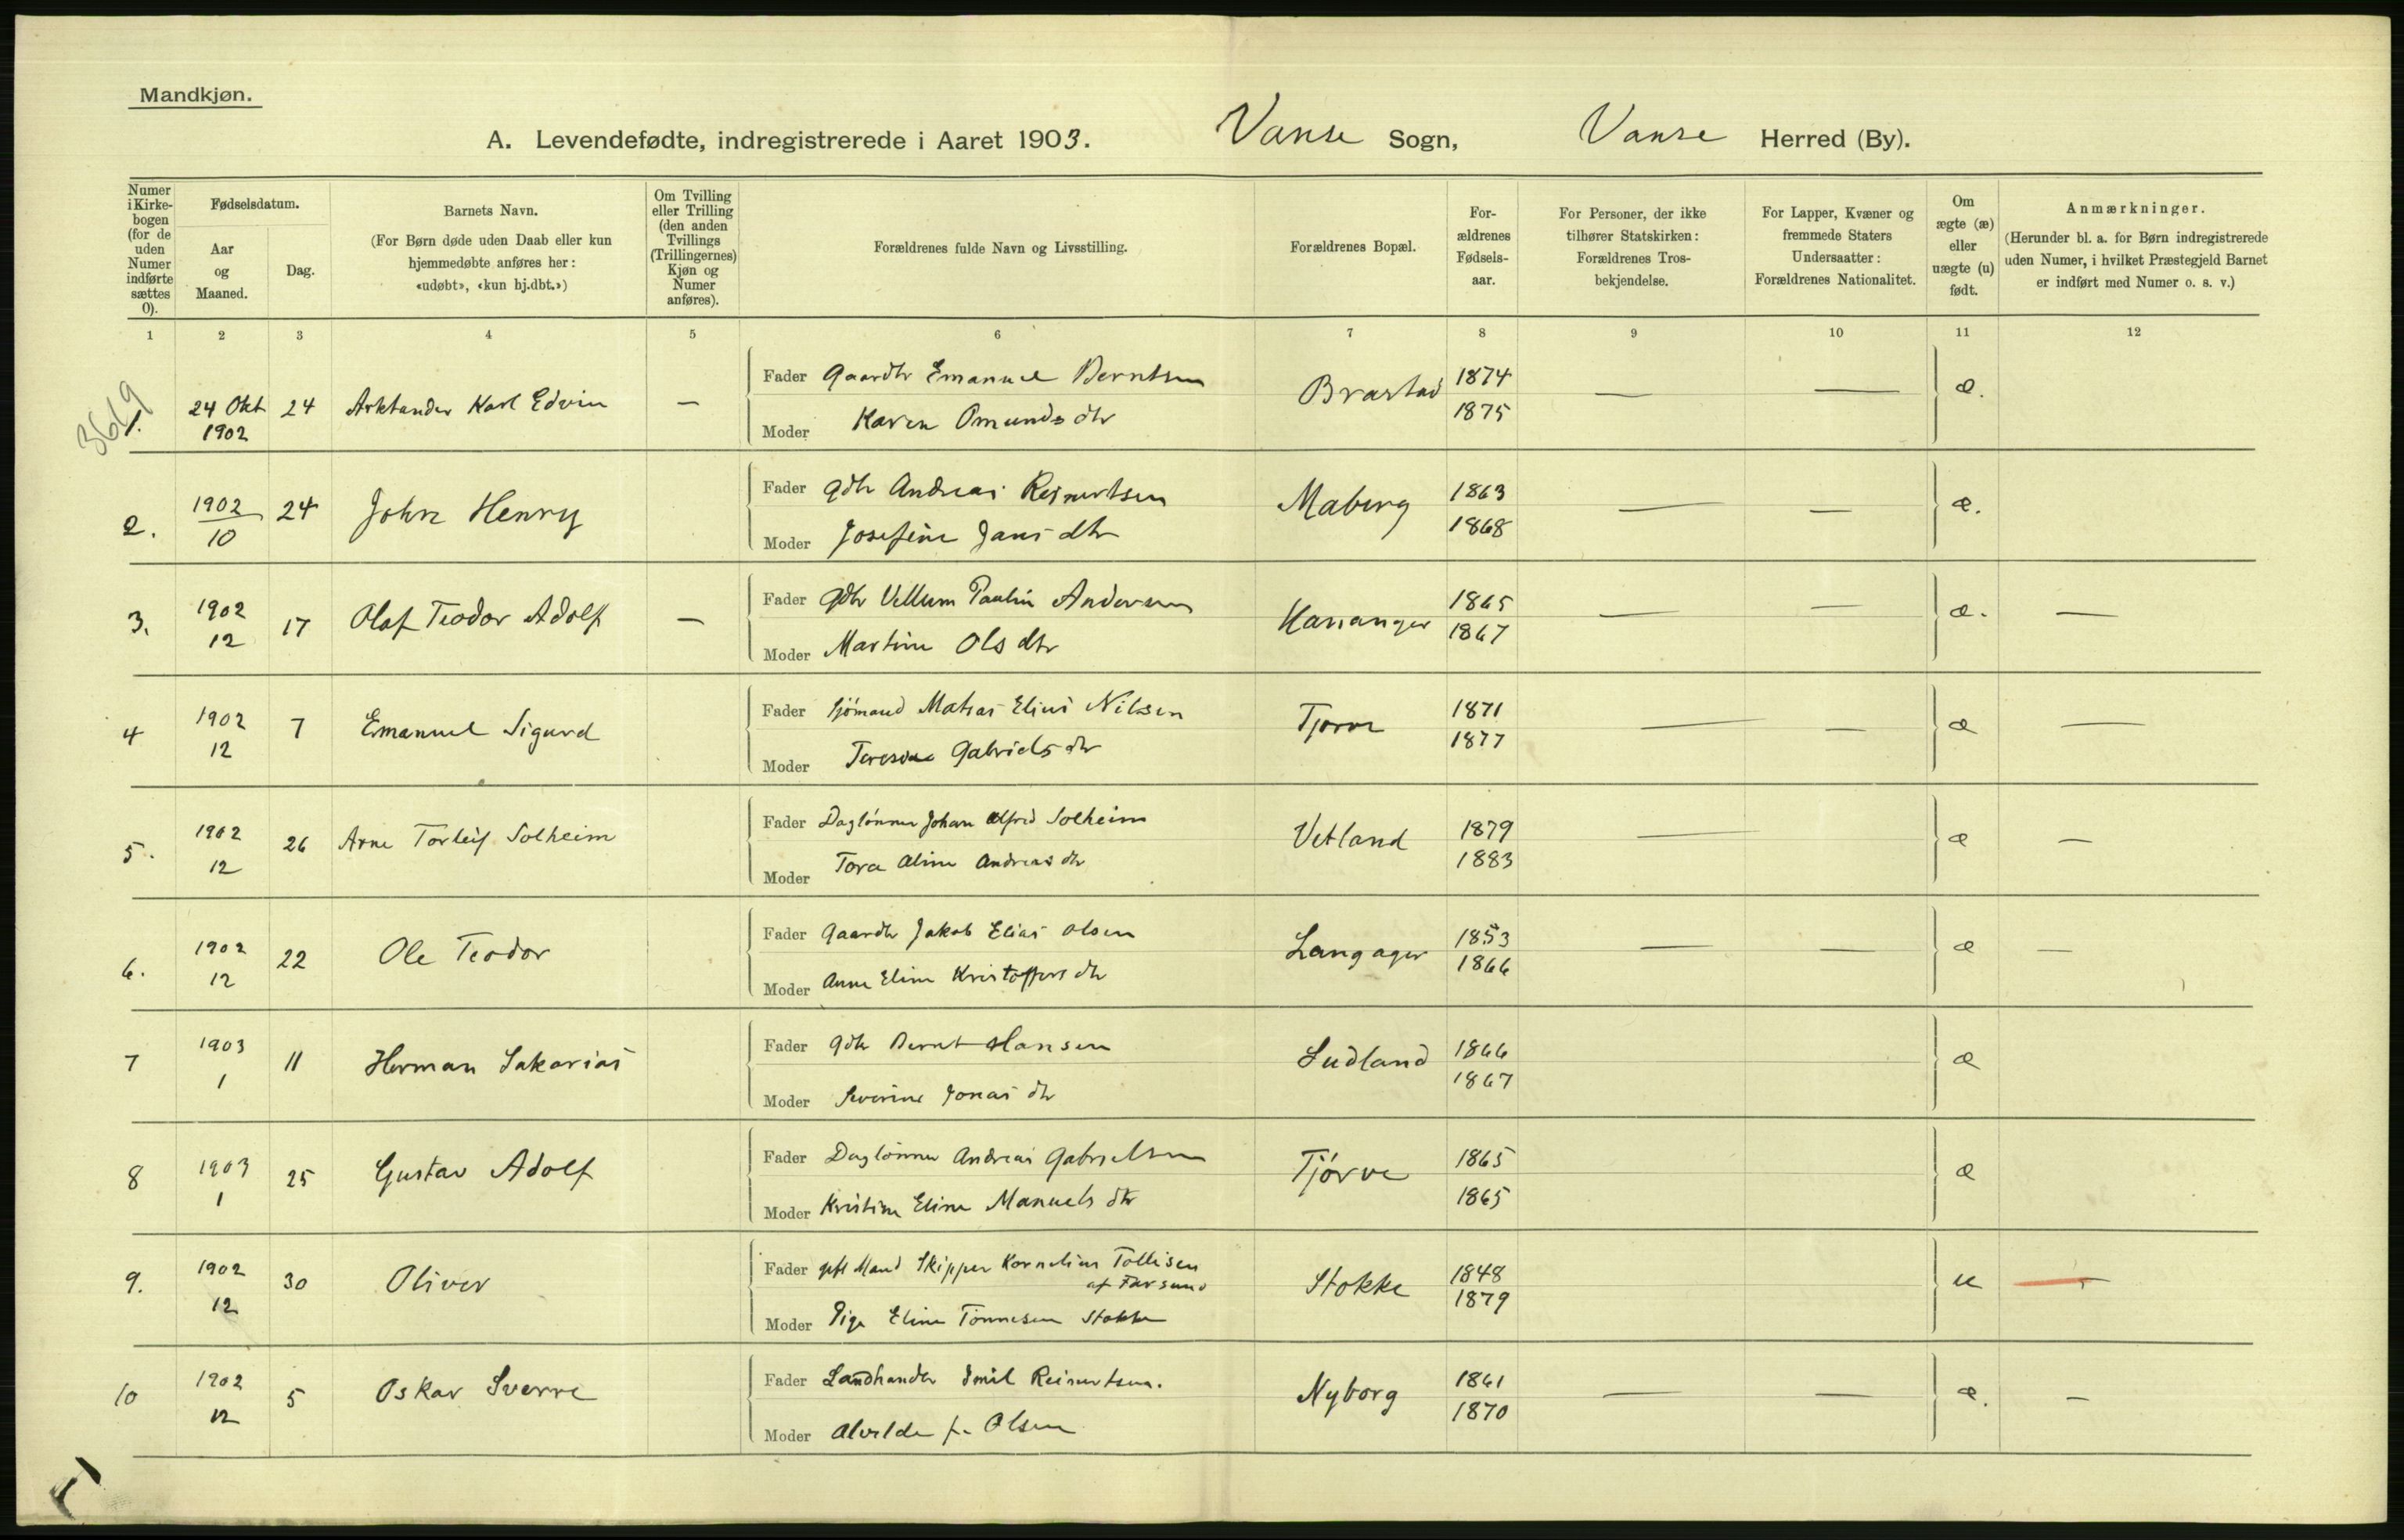 Mandkjøn.
A. Levendefødte, indregistrerede i Aaret 1903. Vanse Sogn, Vanse Herred (By).
Numer i Kirkebogen (for de uden Numer indførte sættes 0).
Fødselsdatum.
Aar og Maaned.
Dag.
Barnets Navn.
(For Børn døde uden Daab eller kun hjemmedøbte anføres her: «udøbt», «kun hj.dbt.»)
Om Tvilling eller Trilling (den anden Tvillings (Trillingernes) Kjøn og Numer anføres).
Forældrenes fulde Navn og Livsstilling.
Forældrenes Bopæl.
Forældrenes Fødselsaar.
For Personer, der ikke tilhører Statskirken: Forældrenes Trosbekjendelse.
For Lapper, Kvæner og fremmede Staters Undersaatter: Forældrenes Nationalitet.
Om ægte (æ) eller uægte (u) født.
Anmærkninger.
(Herunder bl. a. for Børn indregistrerede uden Numer, i hvilket Præstegjeld Barnet er indført med Numer o. s. v.)
1 2 3 4 5 6 7 8 9 10 11 12
3619
1. 24 Okt 1902 24 Arktander Karl Edvin — Fader Gaardbr Emanuel Berntsen Brastad 1874 — — æ.
Moder Karen Omunds dtr 1875
2. 1902 10 24 John Henry Fader Gbr Andreas Reinertsen Maberg 1863 — — æ.
Moder Josefine Jans dtr 1868
3. 1902 12 17 Olaf Teodor Adolf — Fader Gbr Vellum Paulin Andersen Hananger 1865 — — æ. —
Moder Martine Ols dtr 1867
4 1902 12 7 Emanuel Sigurd Fader Sjømand Matias Elius Nilsen Tjørve 1871 — — æ —
Moder Gabriels dtr 1877
5. 1902 12 26 Arne Torleif Solheim Fader Daglønner Johan Alfred Solheim Vetland 1879 — æ —
Moder Tora Aline Andreas dtr 1883
6. 1902 12 22 Ole Teodor Fader Gaardbr Jakob Elias Olsen Langager 1853 — — æ —
Moder Anne Eline Kristoffers dtr 1866
7 1903 1 11 Herman Sakarias Fader Gbr Bernt Hansen Ludland 1866 æ
Moder Severine Jonas dtr 1867
8 1903 1 25 Gustav Adolf Fader Daglønner Andreas Gabrielsen Tjørve 1865 æ
Moder Kristine Eline Manuels dtr 1865
9. 1902 12 30 Oliver Fader gift Mand Skipper Kornelius Tollisen af Farsund Stokke 1848 u —
Moder Pige Eline Tønnesen Stokke 1879
10 1902 12 5 Oskar Sverre Fader Landhandler Emil Reinertsen. Nyborg 1861 — — æ. —
Moder Alvilde f. Olsen 1870